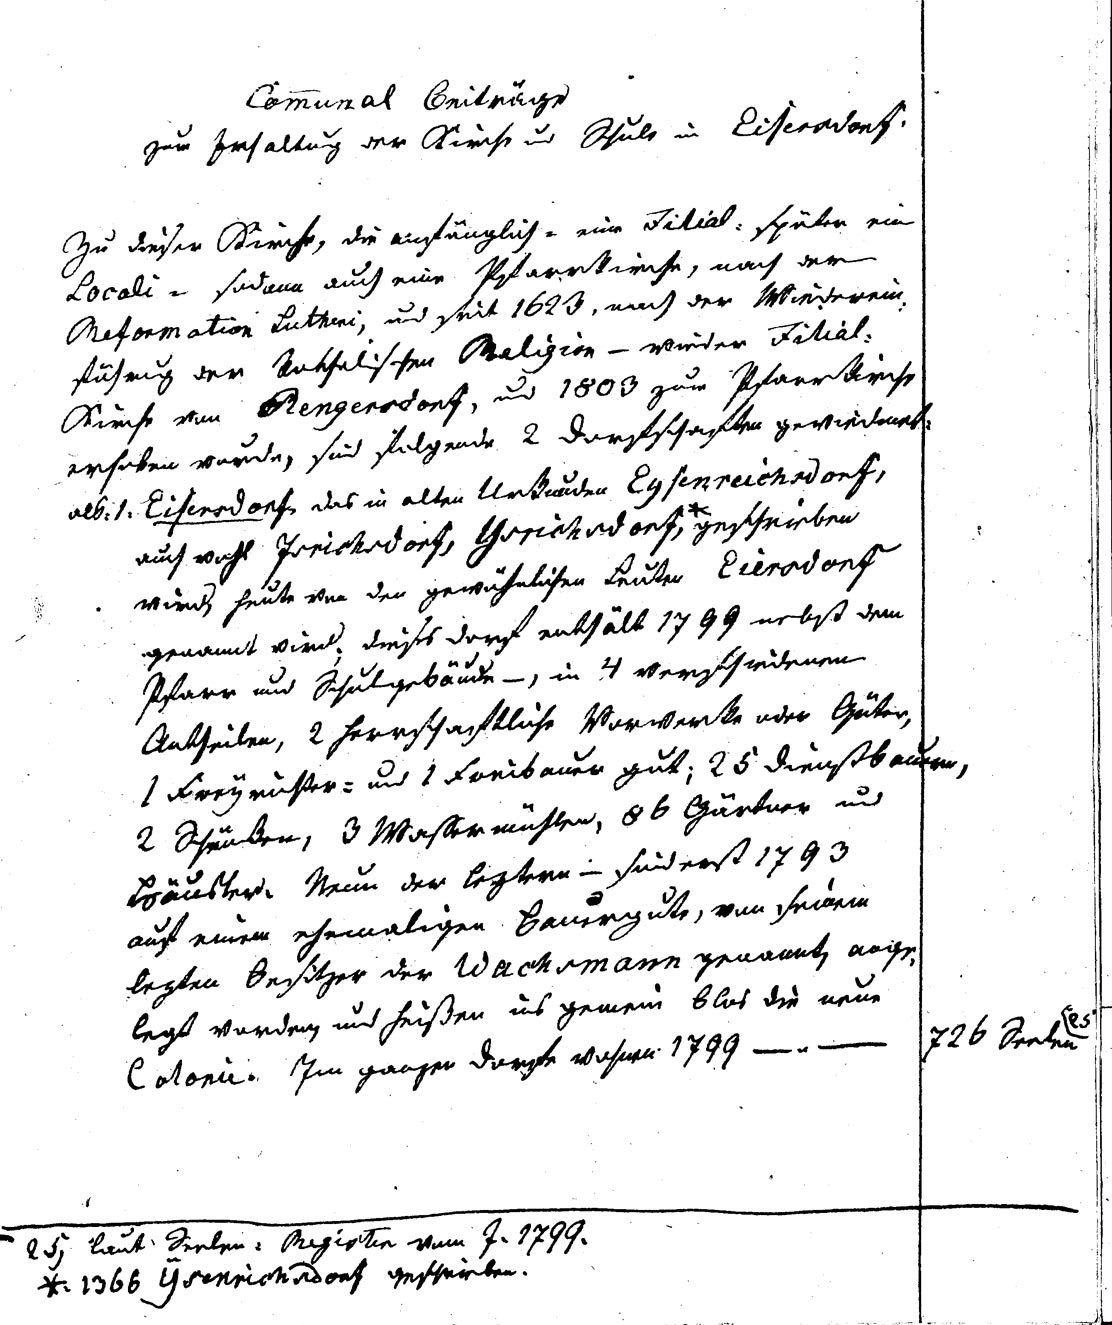 Com̅unal Beiträge
zur Erhaltung der Kirche und Schule in Eisersdorf.
Zu dieser Kirche, die anfänglich = eine Filial = später ein
Locali = sodann auch eine Pfarrkirche, nach der
Reformation Lutheri, und seit 1623, nach der Wiederein=
führung der katholischen Religion – wieder Filial=
Kirche von Rengersdorf, und 1803 zur Pfarrkirche
erhoben wurde, sind folgende 2 Dorfschaften gewiedmet:
als: 1. Eisersdorf, das in alten Urkunden Eysenreichsdorf,
auch wohl Isrichsdorf, Ysrichsdorf,* geschrieben
wird, heute von den gewöhnlichen Leuten Eiersdorf
genannt wird; dieses Dorf enthält 1799 nebst dem
Pfarr und Schulgebäude –, in 4 verschiedenen
Antheilen, 2 herrschaftliche Vorwerke oder Güter,
1 Freyrichter= und 1 Freibauer gut; 25 Dienstbauern,
2 Schänken, 3 Wassermühlen, 86 Gärtner und
Häusler. Neun der leztern – sind erst 1793
auf einem ehemaligen Bauergute, von seinem
lezten Besitzer der Wachsmann genannt, ange=
legt worden, und heißen ins gemein blos die neue
Colonie. Im ganzen Dorfe wohnen 1799 — „ — 726 Seelen (25
25, laut Seelen = Register vom J. 1799.
*. 1366 Ysenrichsdorf geschrieben.